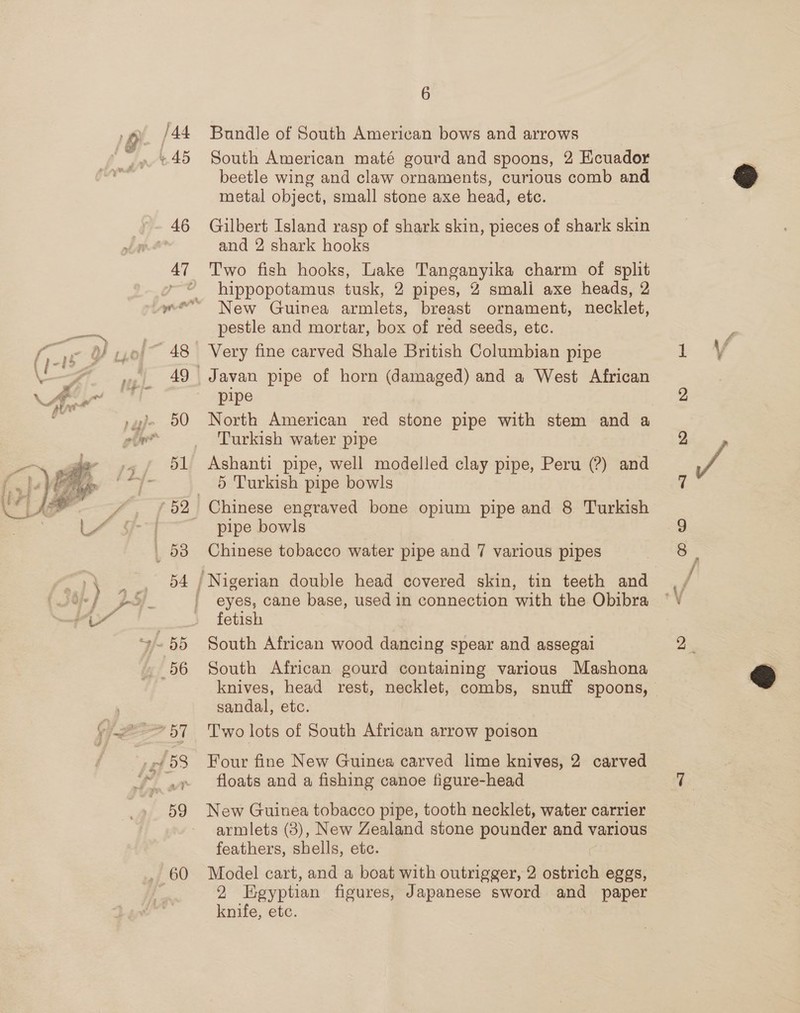 6
44 Bundle of South American bows and arrows
45 South American maté gourd and spoons, 2 Ecuador
beetle wing and claw ornaments, curious comb and
metal object, small stone axe head, etc.
46 Gilbert Island rasp of shark skin, pieces of shark skin
and 2 shark hooks
47 Two fish hooks, Lake Tanganyika charm of split
hippopotamus tusk, 2 pipes, 2 small axe heads, 2
New Guinea armlets, breast ornament, necklet,
pestle and mortar, box of red seeds, etc.
48 Very fine carved Shale British Columbian pipe 1
49 Javan pipe of horn (damaged) and a West African
pipe 2
50 North American red stone pipe with stem and a
Turkish water pipe 2
51 Ashanti pipe, well modelled clay pipe, Peru (?) and
5 Turkish pipe bowls 7
52 Chinese engraved bone opium pipe and 8 Turkish
pipe bowls 9
53 Chinese tobacco water pipe and 7 various pipes 8
54 Nigerian double head covered skin, tin teeth and
eyes, cane base, used in connection with the Obibra
fetish
55 South African wood dancing spear and assegai 2
56 South African gourd containing various Mashona
knives, head rest, necklet, combs, snuff spoons,
sandal, etc.
57 Two lots of South African arrow poison
58 Four fine New Guinea carved lime knives, 2 carved
floats and a fishing canoe figure-head 7
59 New Guinea tobacco pipe, tooth necklet, water carrier
armlets (3), New Zealand stone pounder and various
feathers, shells, etc.
60 Model cart, and a boat with outrigger, 2 ostrich eggs,
2 Egyptian figures, Japanese sword and paper
knife, etc.